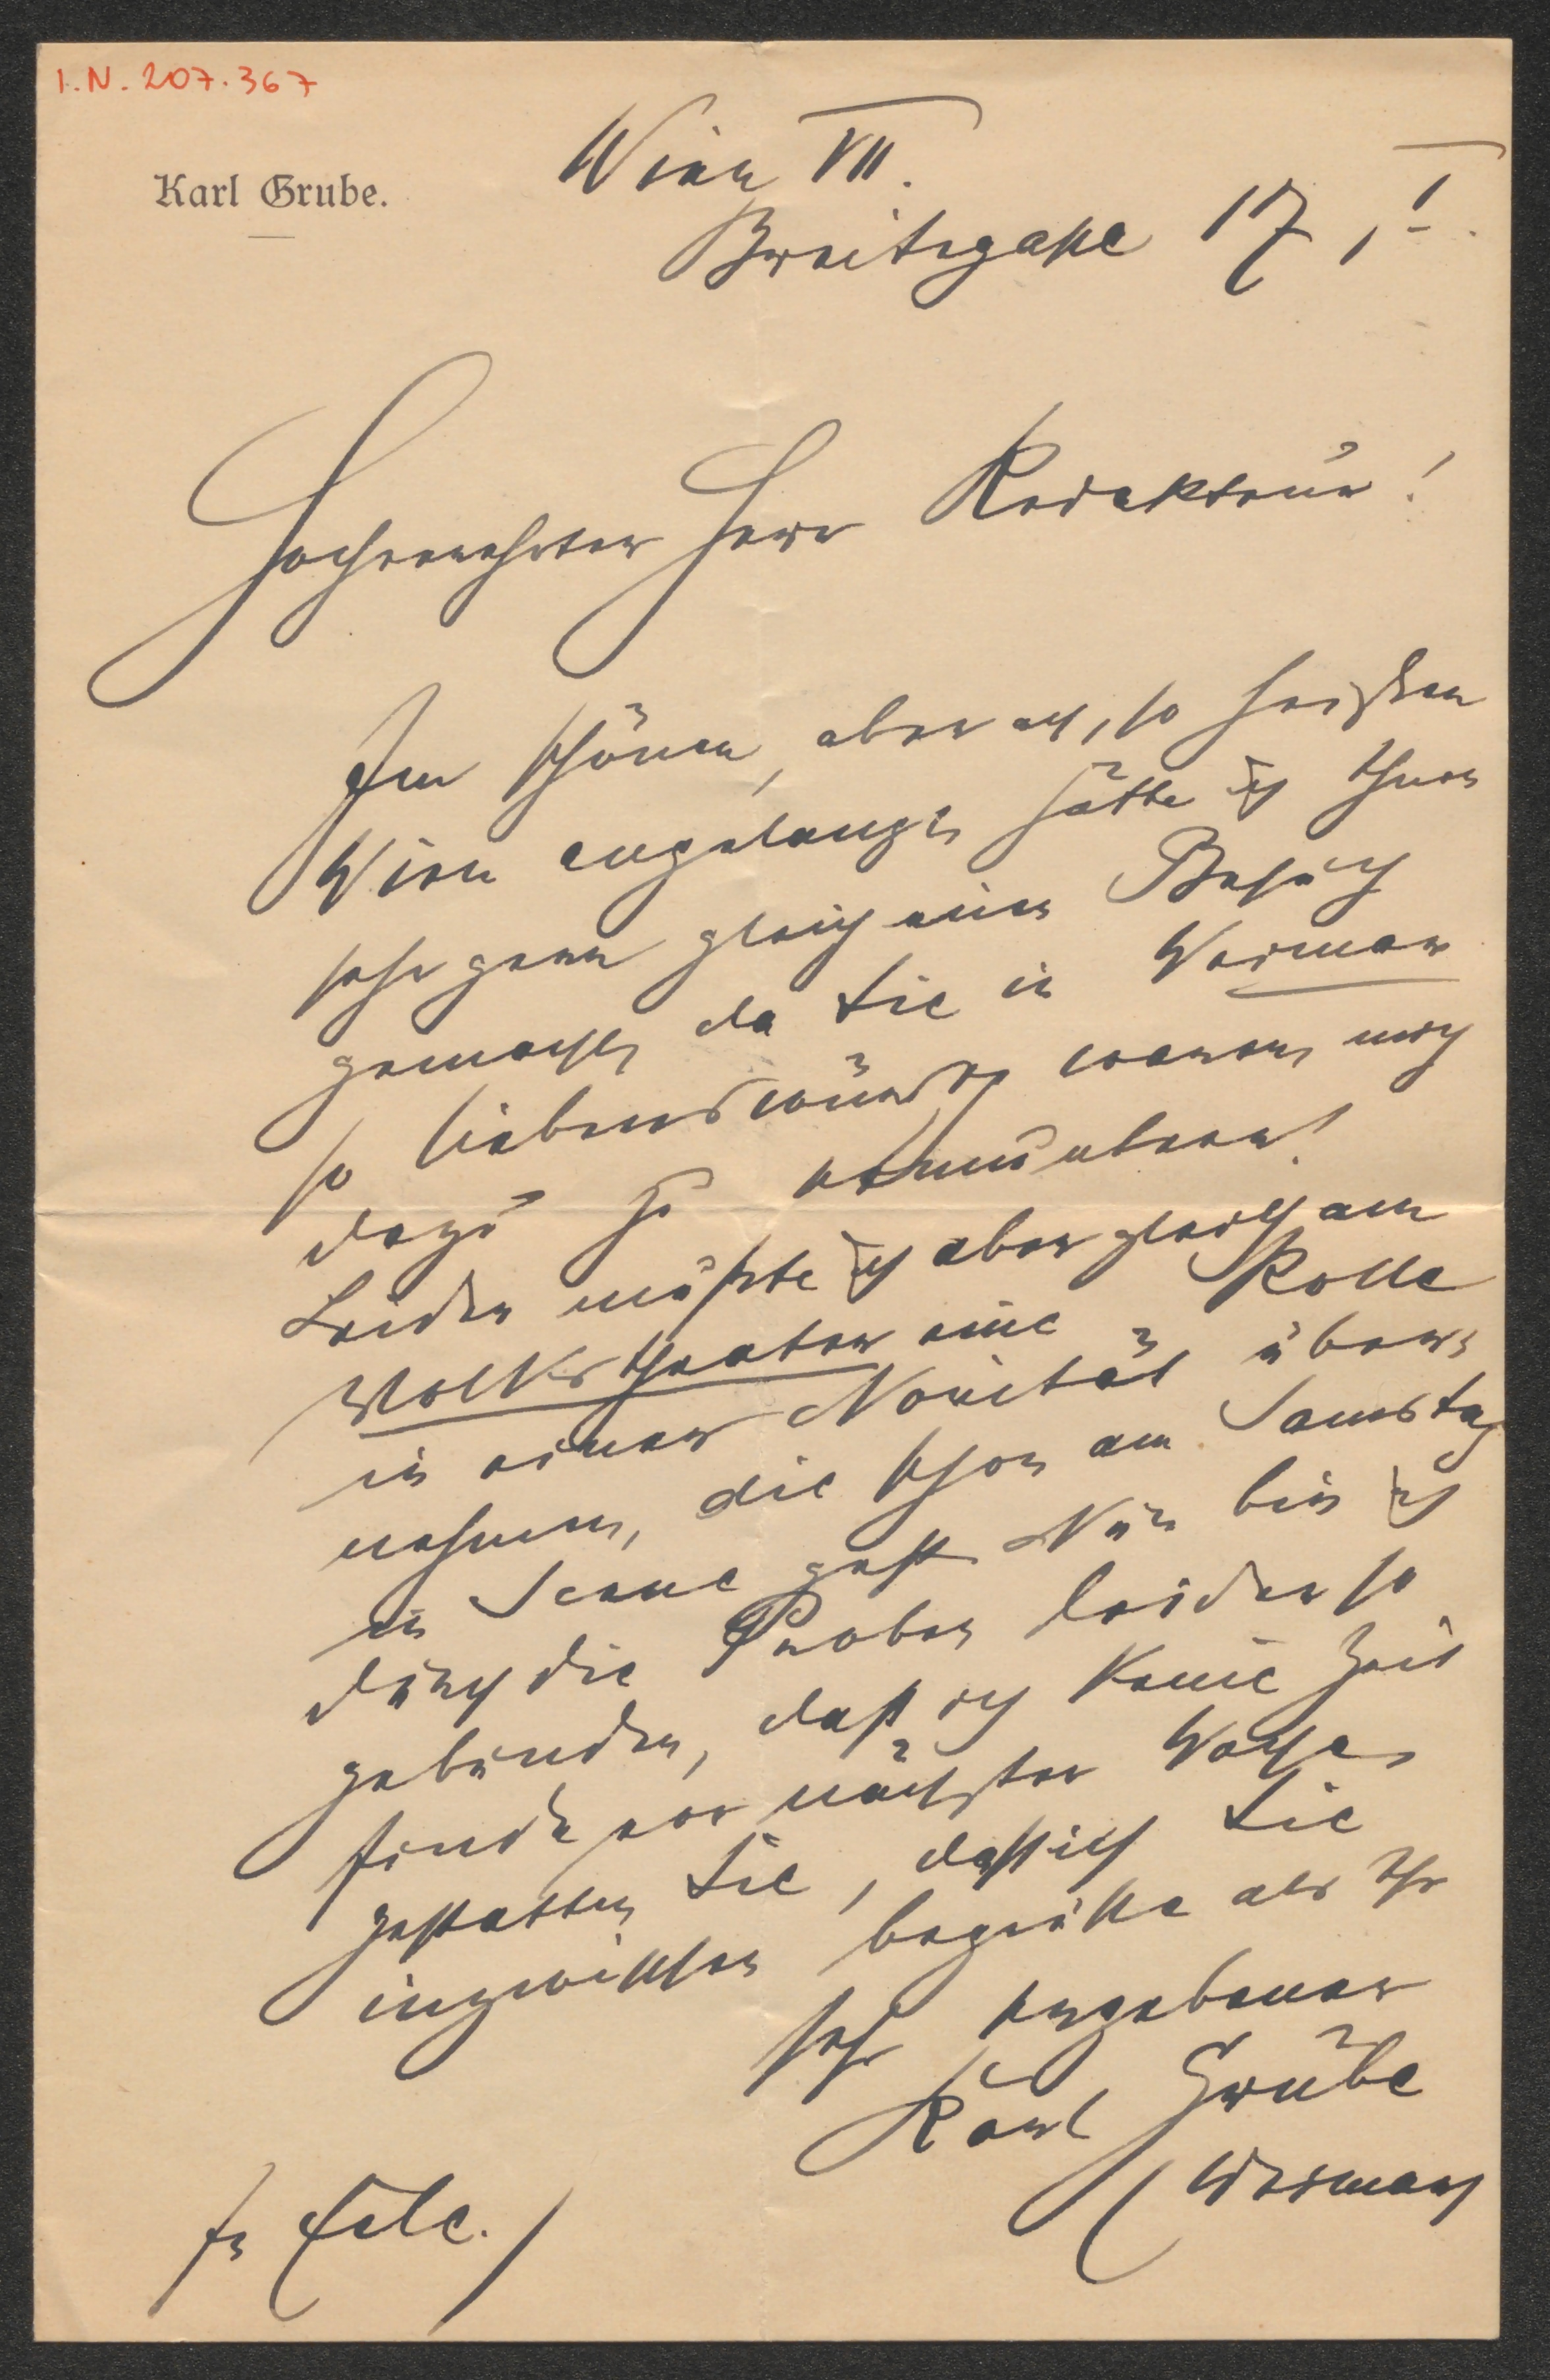 I.N. 207.367
Karl Grube.
Wien VII.
Breitegasse 17, I.
Hochverehrter Herr Redakteur!
Im schönen, aber ach, so heißen
Wien angelangt, hätte ich Ihnen
sehr gern gleich einen Besuch
gemacht, da Sie in Weimar
so liebenswürdig waren, mich
dazu zu ermuntern!
Leider mußte ich aber gleich am
Volkstheater eine Rolle
in einer Novität über-
nehmen, die schon am Samstag
in Scene geht. Nun bin ich
durch die Proben leider so
gebunden, daß ich keine Zeit
finde vor nächster Woche.
Gestatten Sie, daß ich Sie
inzwischen begrüße als Ihr
sehr ergebener
Karl Grube
(Weimar)
In Eile.